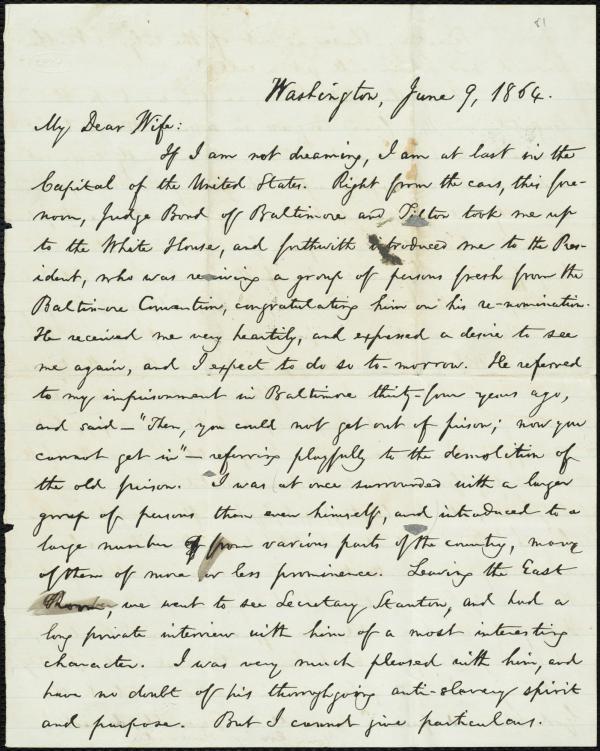 81
Washington, June 9, 1864.
My Dear Wife:
If I am not dreaming, I am at last in the
Capital of the United States. Right from the cars, this fore-
noon, Judge Bond of Baltimore and Tilton took me up
to the White House, and forthwith introduced me to the Pres-
ident, who was receiving a group of persons fresh from the
Baltimore Convention, congratulating him on his re-nomination.
He received me very heartily, and expressed a desire to see
me again, and I expect to do so to-morrow. He referred
to my imprisonment in Baltimore thirty-four years ago,
and said—"Then, you could not get out of prison; now you
cannot get in"—referring playfully to the demolition of
the old prison. I was at once surrounded with a larger
group of persons than even himself, and introduced to a
large number from various parts of the country, many
of them of more or less prominence. Leaving the East
Room, we went to see Secretary Stanton, and had a
long private interview with him of a most interesting
character. I was very much pleased with him, and
have no doubt of his thoroughgoing anti-slavery spirit
and purpose. But I cannot give particulars.